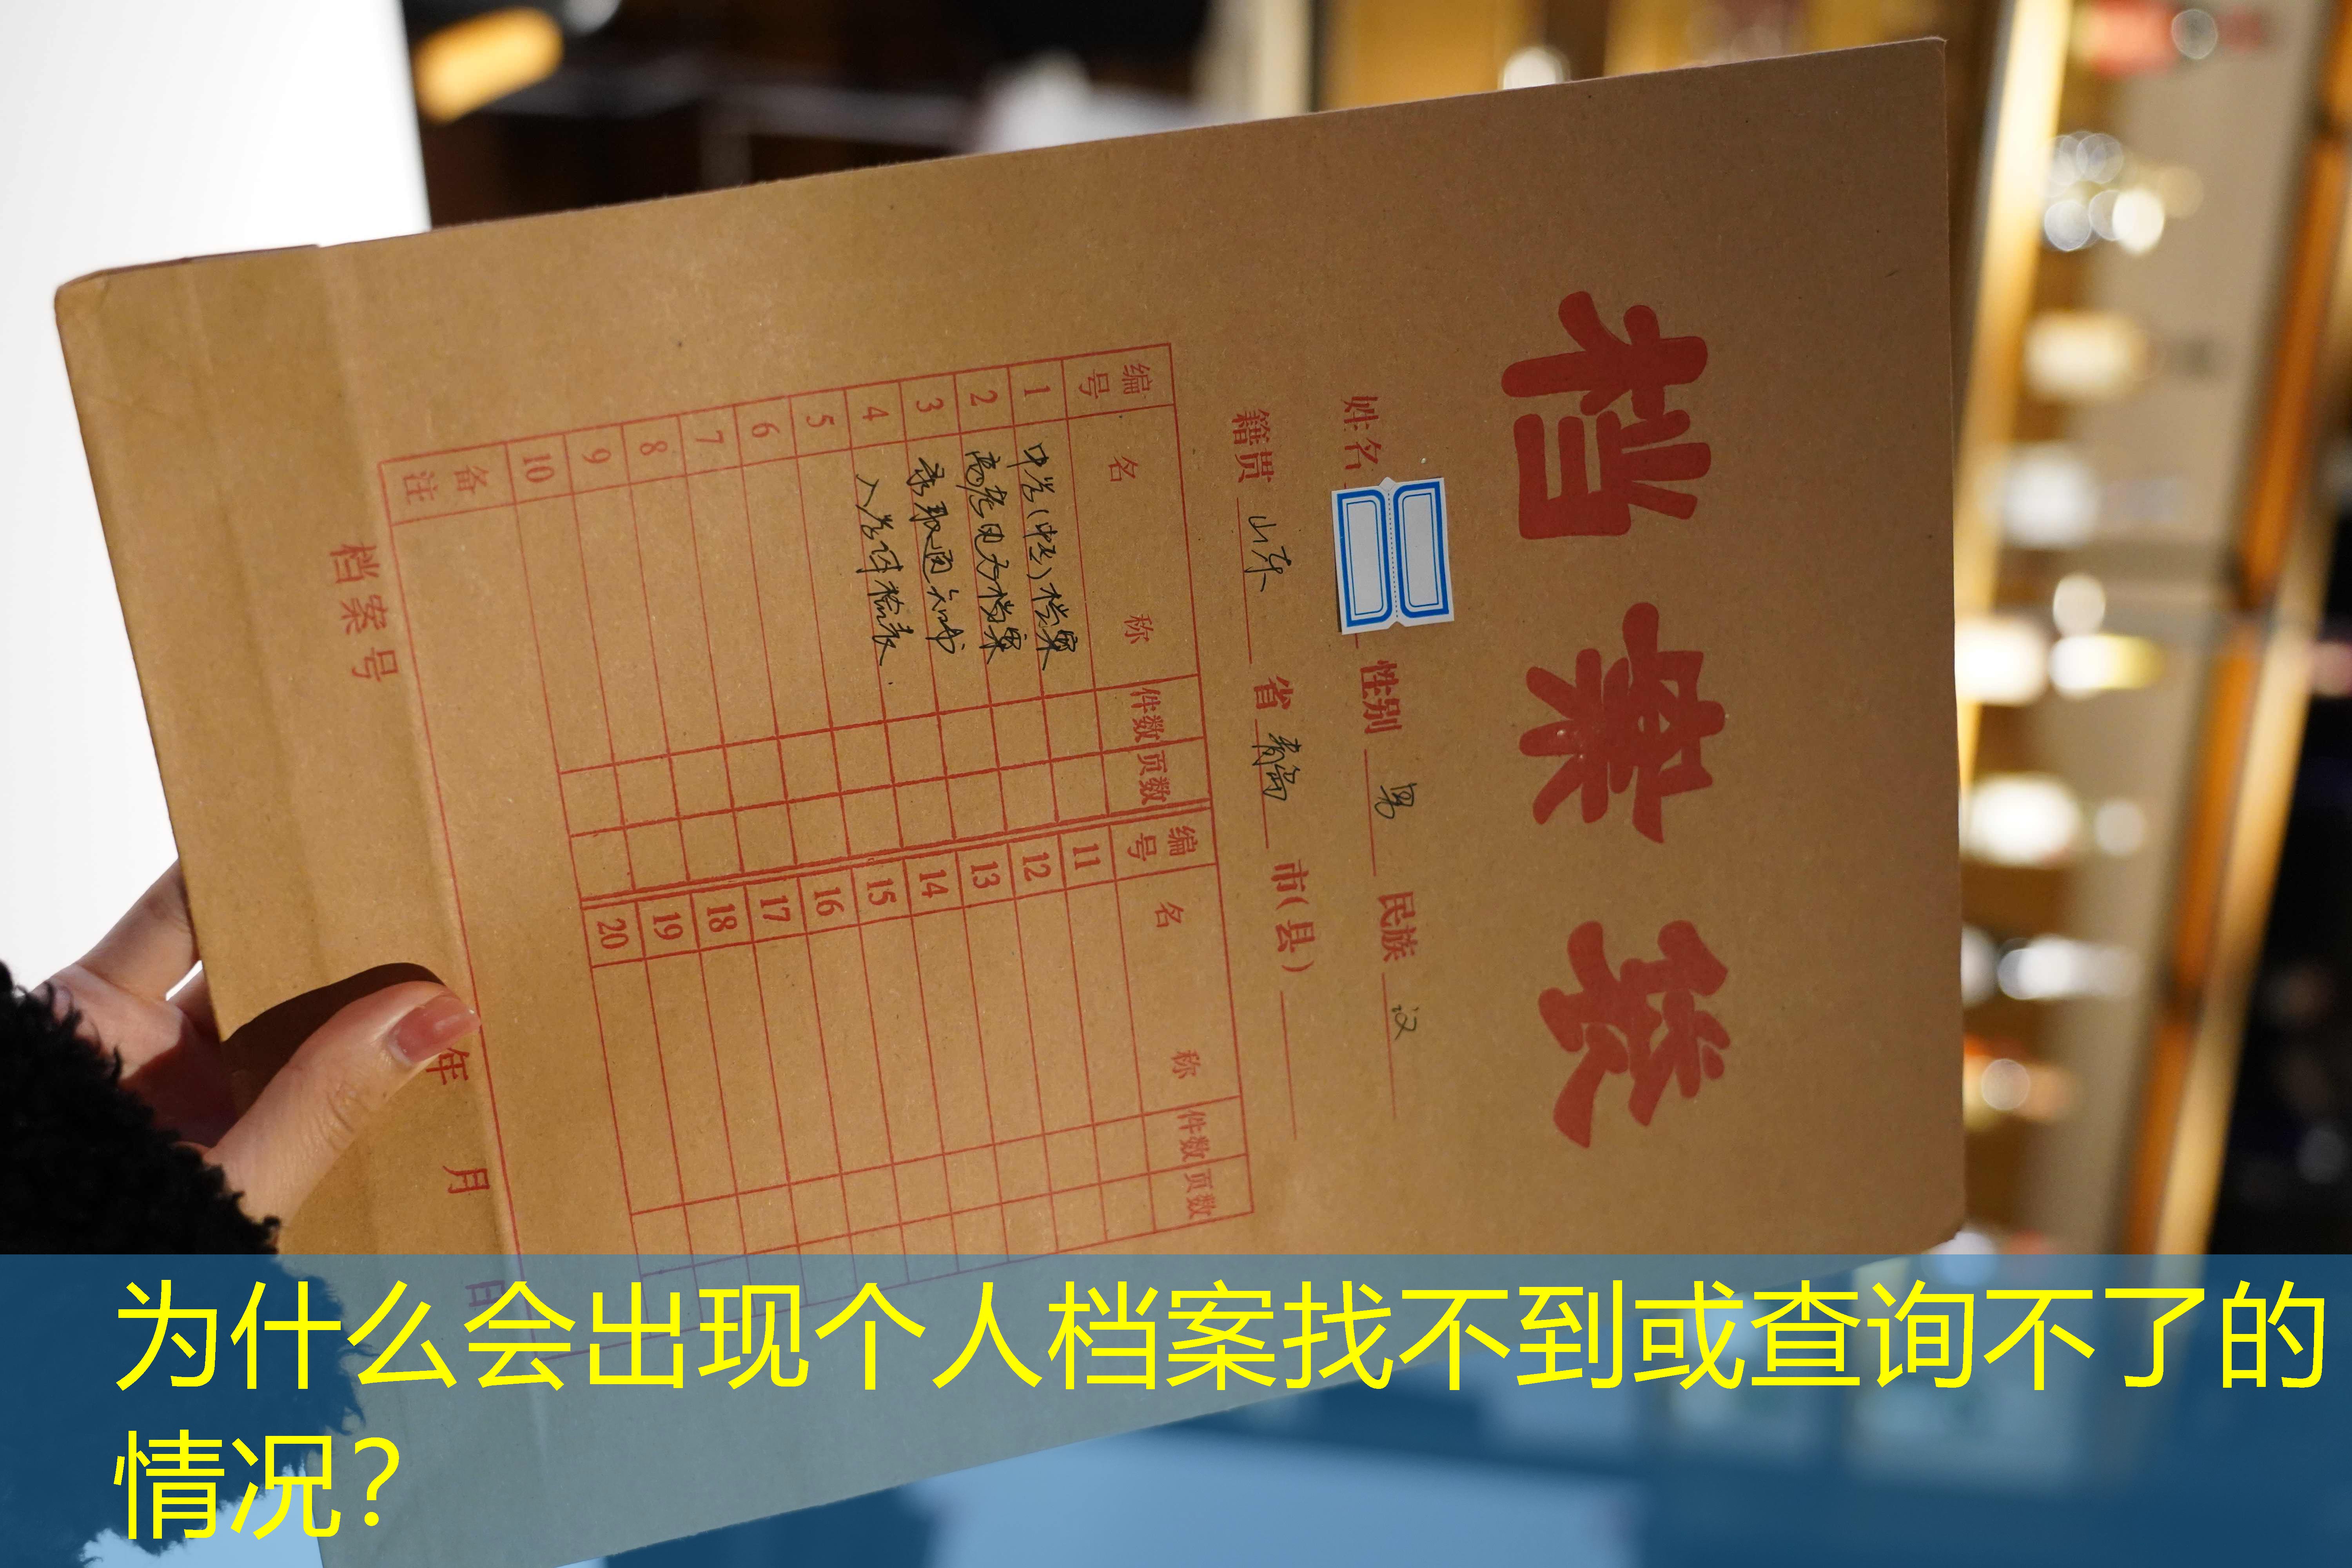 档案袋
姓名 性别 男 民族 汉
籍贯 山东 省 青岛 市(县)
编号 名称 件数 页数 编号 名称 件数 页数
1 中学(中专)档案 11
2 高考电子档案 12
3 录取通知书 13
4 入学体检表 14
5 15
6 16
7 17
8 18
9 19
10 20
备注
档案号 年 月 日
为什么会出现个人档案找不到或查询不了的
情况？